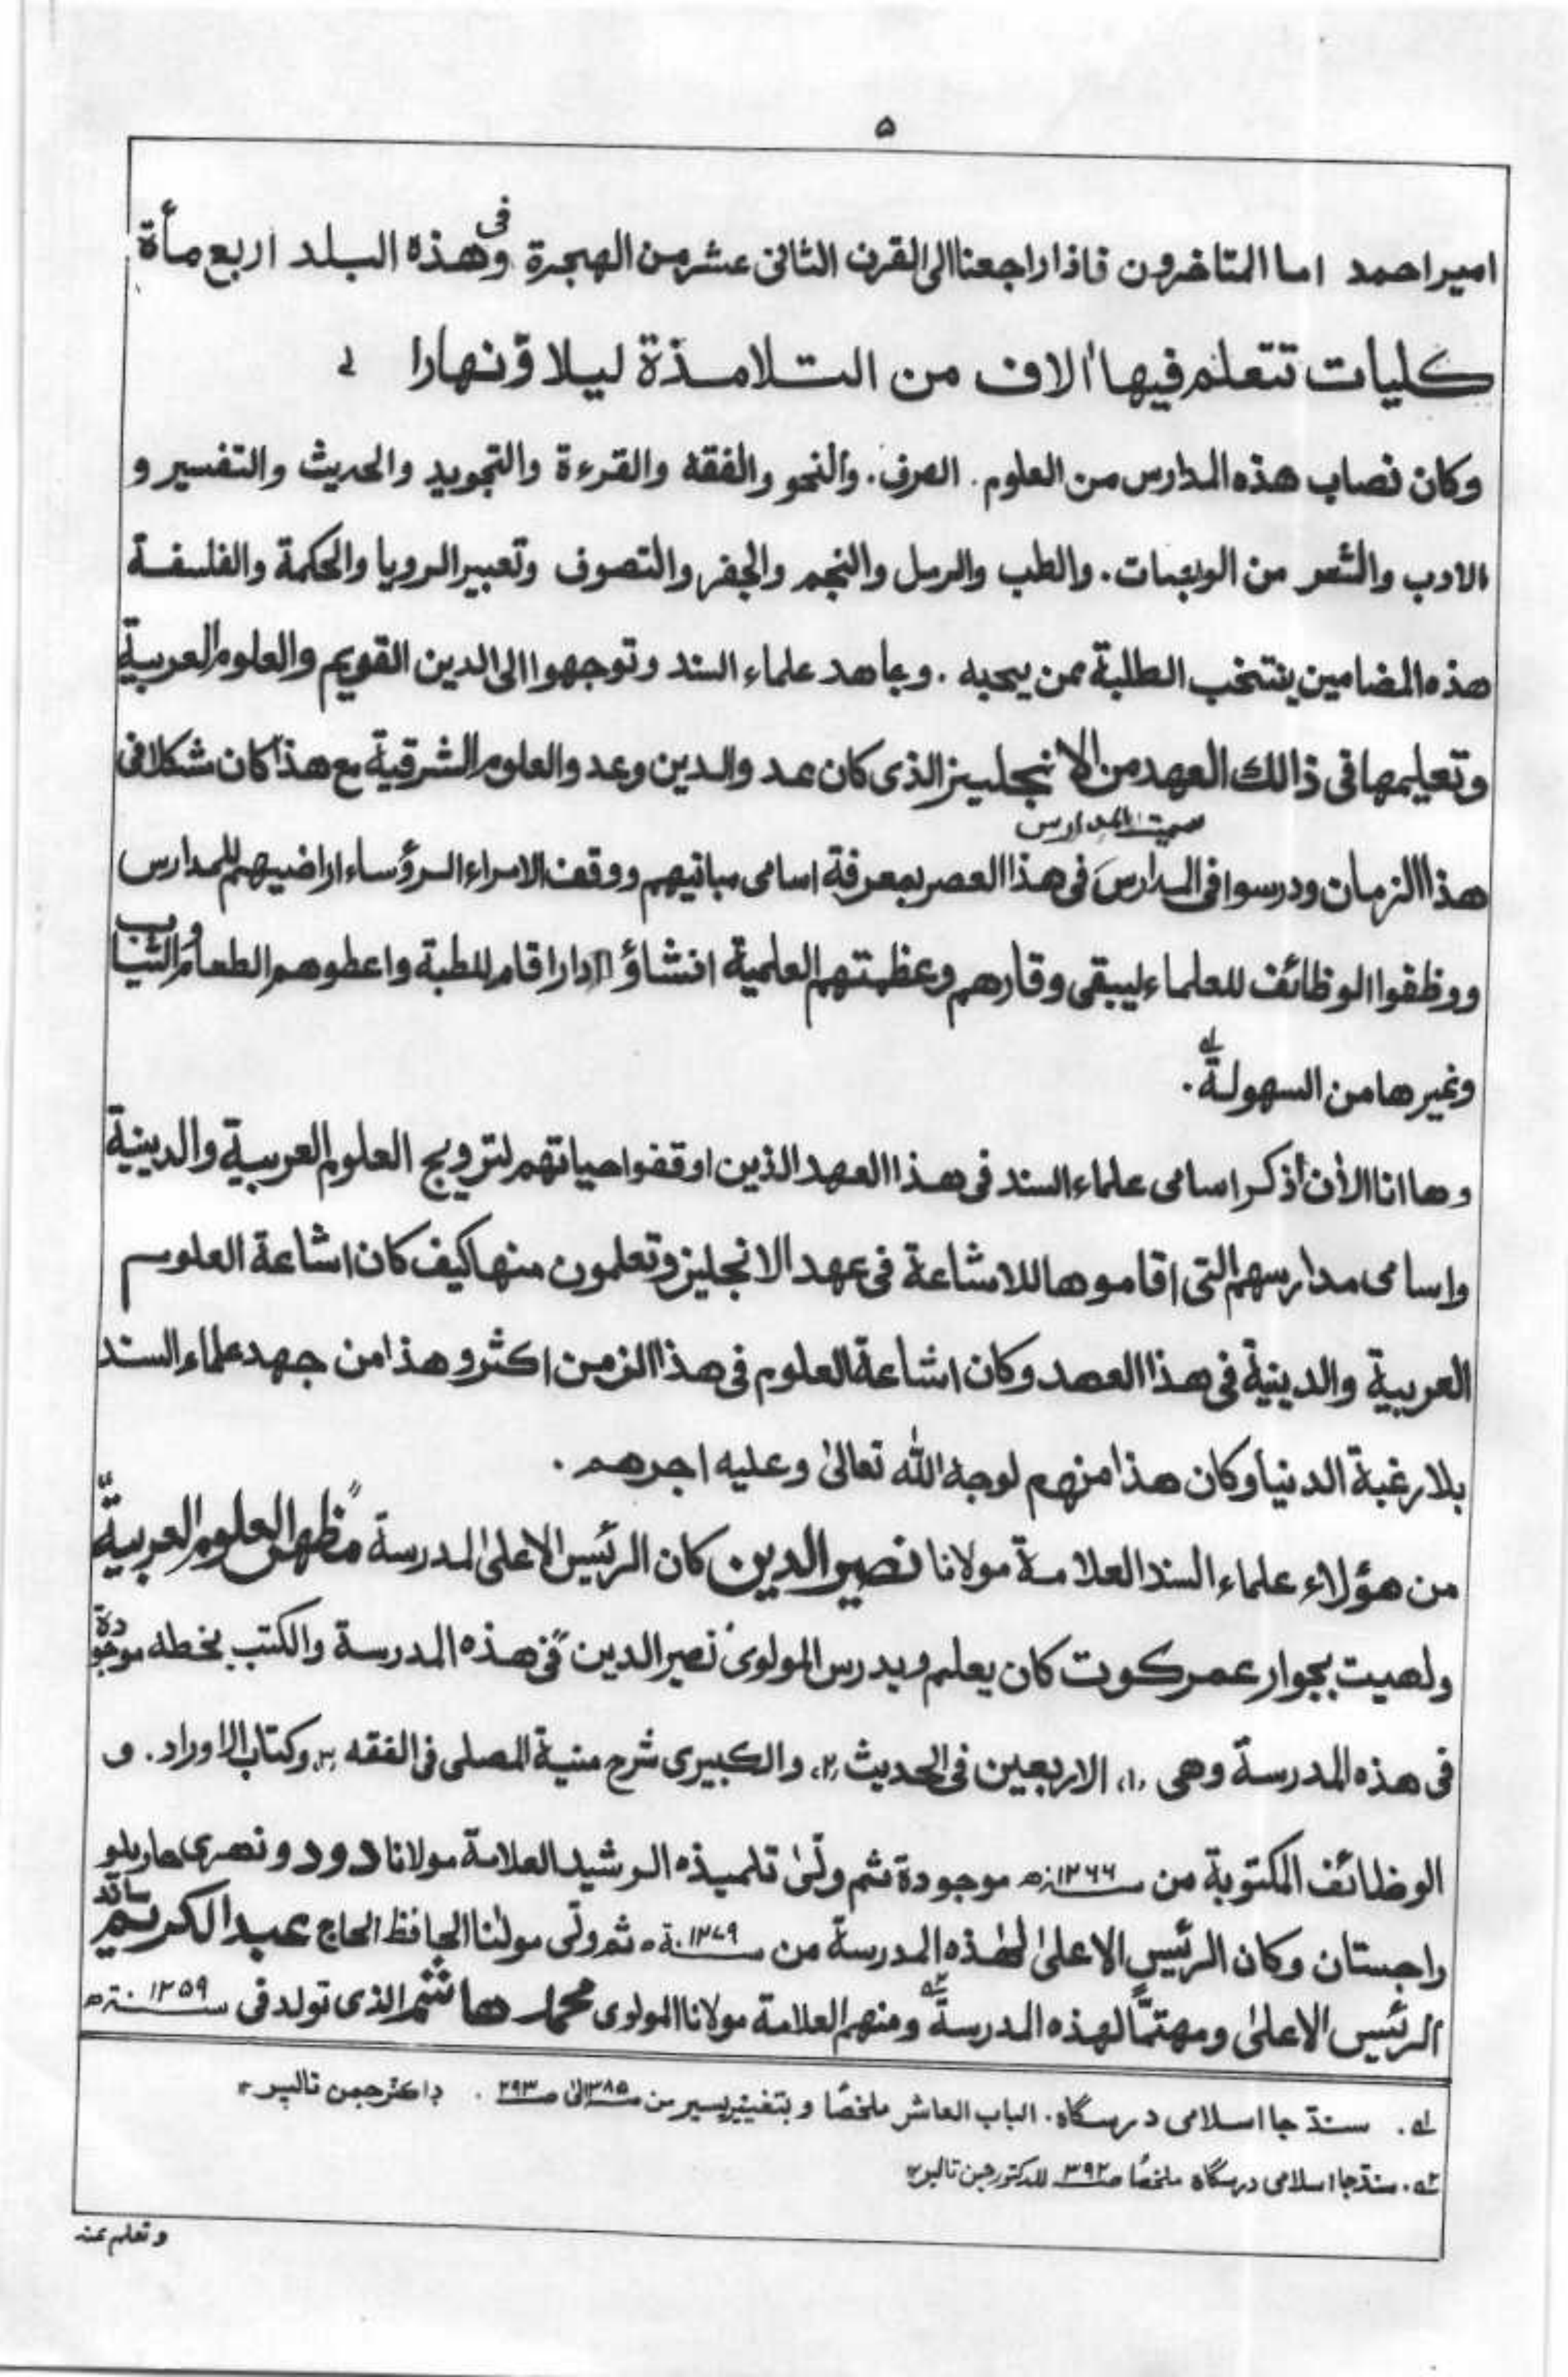 ۵
امیر احمد اما المتاخرون فاذا راجعنا الی القرن الثانی عشر من الهجرة وفی هذه البلد اربع مأة
کلیات تتعلم فیها اٰلاف من التلامذة لیلا وّ نهارا لے
وکان نصاب هذه المدارس من العلوم. الصرف. والنحو والفقه والقرءة والتجوید والحدیث والتفسیر و
الادب والشعر من الوجبات. والطب والرمل والنجم والجفر والتصوف وتعبیر الرویا والحکمة والفلسفة
هذه المضامین ینتخب الطلبة ممن یحبه. وجاهد علماء السند وتوجهوا الی الدین القویم والعلوم العربیة
وتعلیمها فی ذالك العهد من الانجلیز الذی کان عد والدین وعد والعلوم الشرقیة مع هذا کان شکلا فی
هذا الزمان ودرسوا فی المدارس سمیت المدارس فی هذا العصر بمعرفة اسامی مبانیهم ووقف الامراء الرؤساء اراضیهم للمدارس
ووظفوا الوظائف للعلماء لیبقی وقارهم وعظمتهم العلمیة انشاؤا دارا قام للطبة واعطوهم الطعام والثیاب
وغیرها من السهولة. لے
وها انا الأن أذکر اسامی علماء السند فی هذا العهد الذین اوقفوا حیاتهم لترویج العلوم العربیة والدینیة
واسامی مدارسهم التی اقاموها للاشاعة فی عهد الانجلیز وتعلمون منها کیف کان اشاعة العلوم
العربیة والدینیة فی هذا العهد وکان اشاعة العلوم فی هذا الزمن اکثر وهذا من جهد علماء السند
بلا رغبة الدنیا وکان هذا منهم لوجه الله تعالیٰ وعلیه اجرهم.
من هؤلاء علماء السند العلامة مولانا نصیر الدین کان الرئیس الاعلیٰ لمدرسة "مظهر العلوم العربیة"
ولهیت بجوار عمرکوت کان یعلم ویدرس المولوی نصیر الدین فی هذه المدرسة والکتب بخطه موجودة
فی هذه المدرسة وهی (۱) الاربعین فی الحدیث (۲) والکبیری شرح منیة المصلی فی الفقه (۳) وکتاب الاوراد. و
الوظائف المکتوبة من سنه ۱۲۶۶ه موجودة ثم ولّیٰ تلمیذه الرشید العلامة مولانا دود ونهری هاریلو
راجستان وکان الرئیس الاعلیٰ لهٰذه المدرسة من سنة ۱۲۷۹ه ثم ولّی مولٰنا الحافظ الحاج عبدالکریم ساند
الرئیس الاعلیٰ ومهتمًّا لهذه المدرسة ومنهم العلامة مولانا المولوی محمد هاشم الذی تولد فی سنة ۱۲۵۹ه
لے. سنڌ جا اسلامی درسگاه. الباب العاشر ملخصًا و بتغییر یسیر من ص ۳۸۵ الیٰ ص ۳۹۳. ڊاکٽر جمن ٽالپر
۲ے. سنڌ جا اسلامی درسگاه ملخصًا ص ۳۹۲ للدکتور جمن تالبر
وتعلم عند